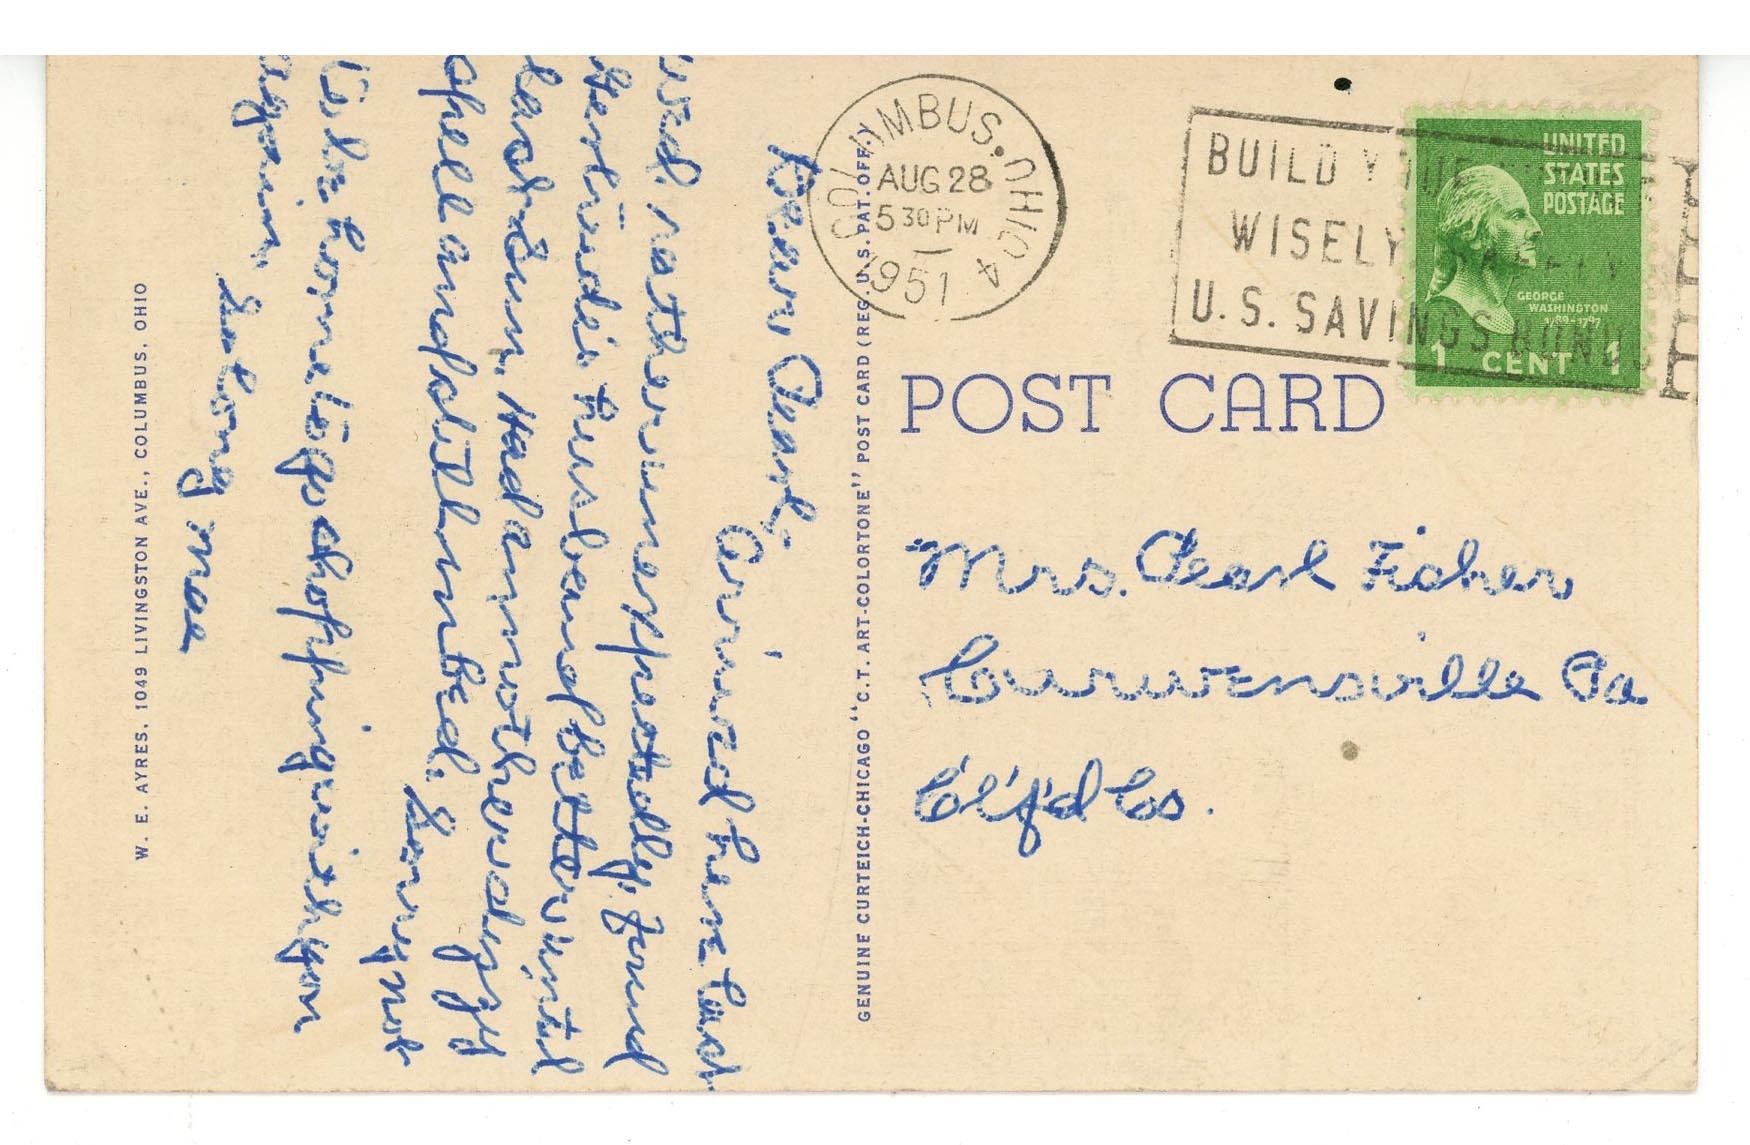 W. E. AYRES, 1049 LIVINGSTON AVE., COLUMBUS, OHIO
Dear Pearl,
Arrived here last
wed. rather unexpectedly. Found
Gertrude's husband better until
last Sun. Had another dizzy
spell and still in bed. Sorry not
to be home to go shopping with you
again. So long Mae
GENUINE CURTEICH-CHICAGO "C.T. ART-COLORTONE" POST CARD (REG. U.S. PAT. OFF.)
COLUMBUS, OHIO 4
AUG 28
5 30 PM
1951
BUILD YOUR
WISELY SAFELY
U.S. SAVINGS BONDS
UNITED
STATES
POSTAGE
GEORGE
WASHINGTON
1789-1797
1 CENT 1
POST CARD
Mrs. Pearl Fisher
Curwensville Pa
Cl'f'd Co.